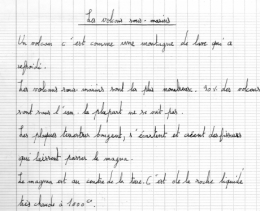 Les volcans sous-marins
Un volcan c'est comme une montagne de lave qui a
refroidi.
Les volcans sous-marins sont les plus nombreux. 80% des volcans
sont sous l'eau. la plupart ne se voit pas.
Les plaques bougent, s'écartent et créent des fissures
qui laissent passer le magma.
Le magma est au centre de la terre. C'est de la roche liquide
très chaude à 1000°.